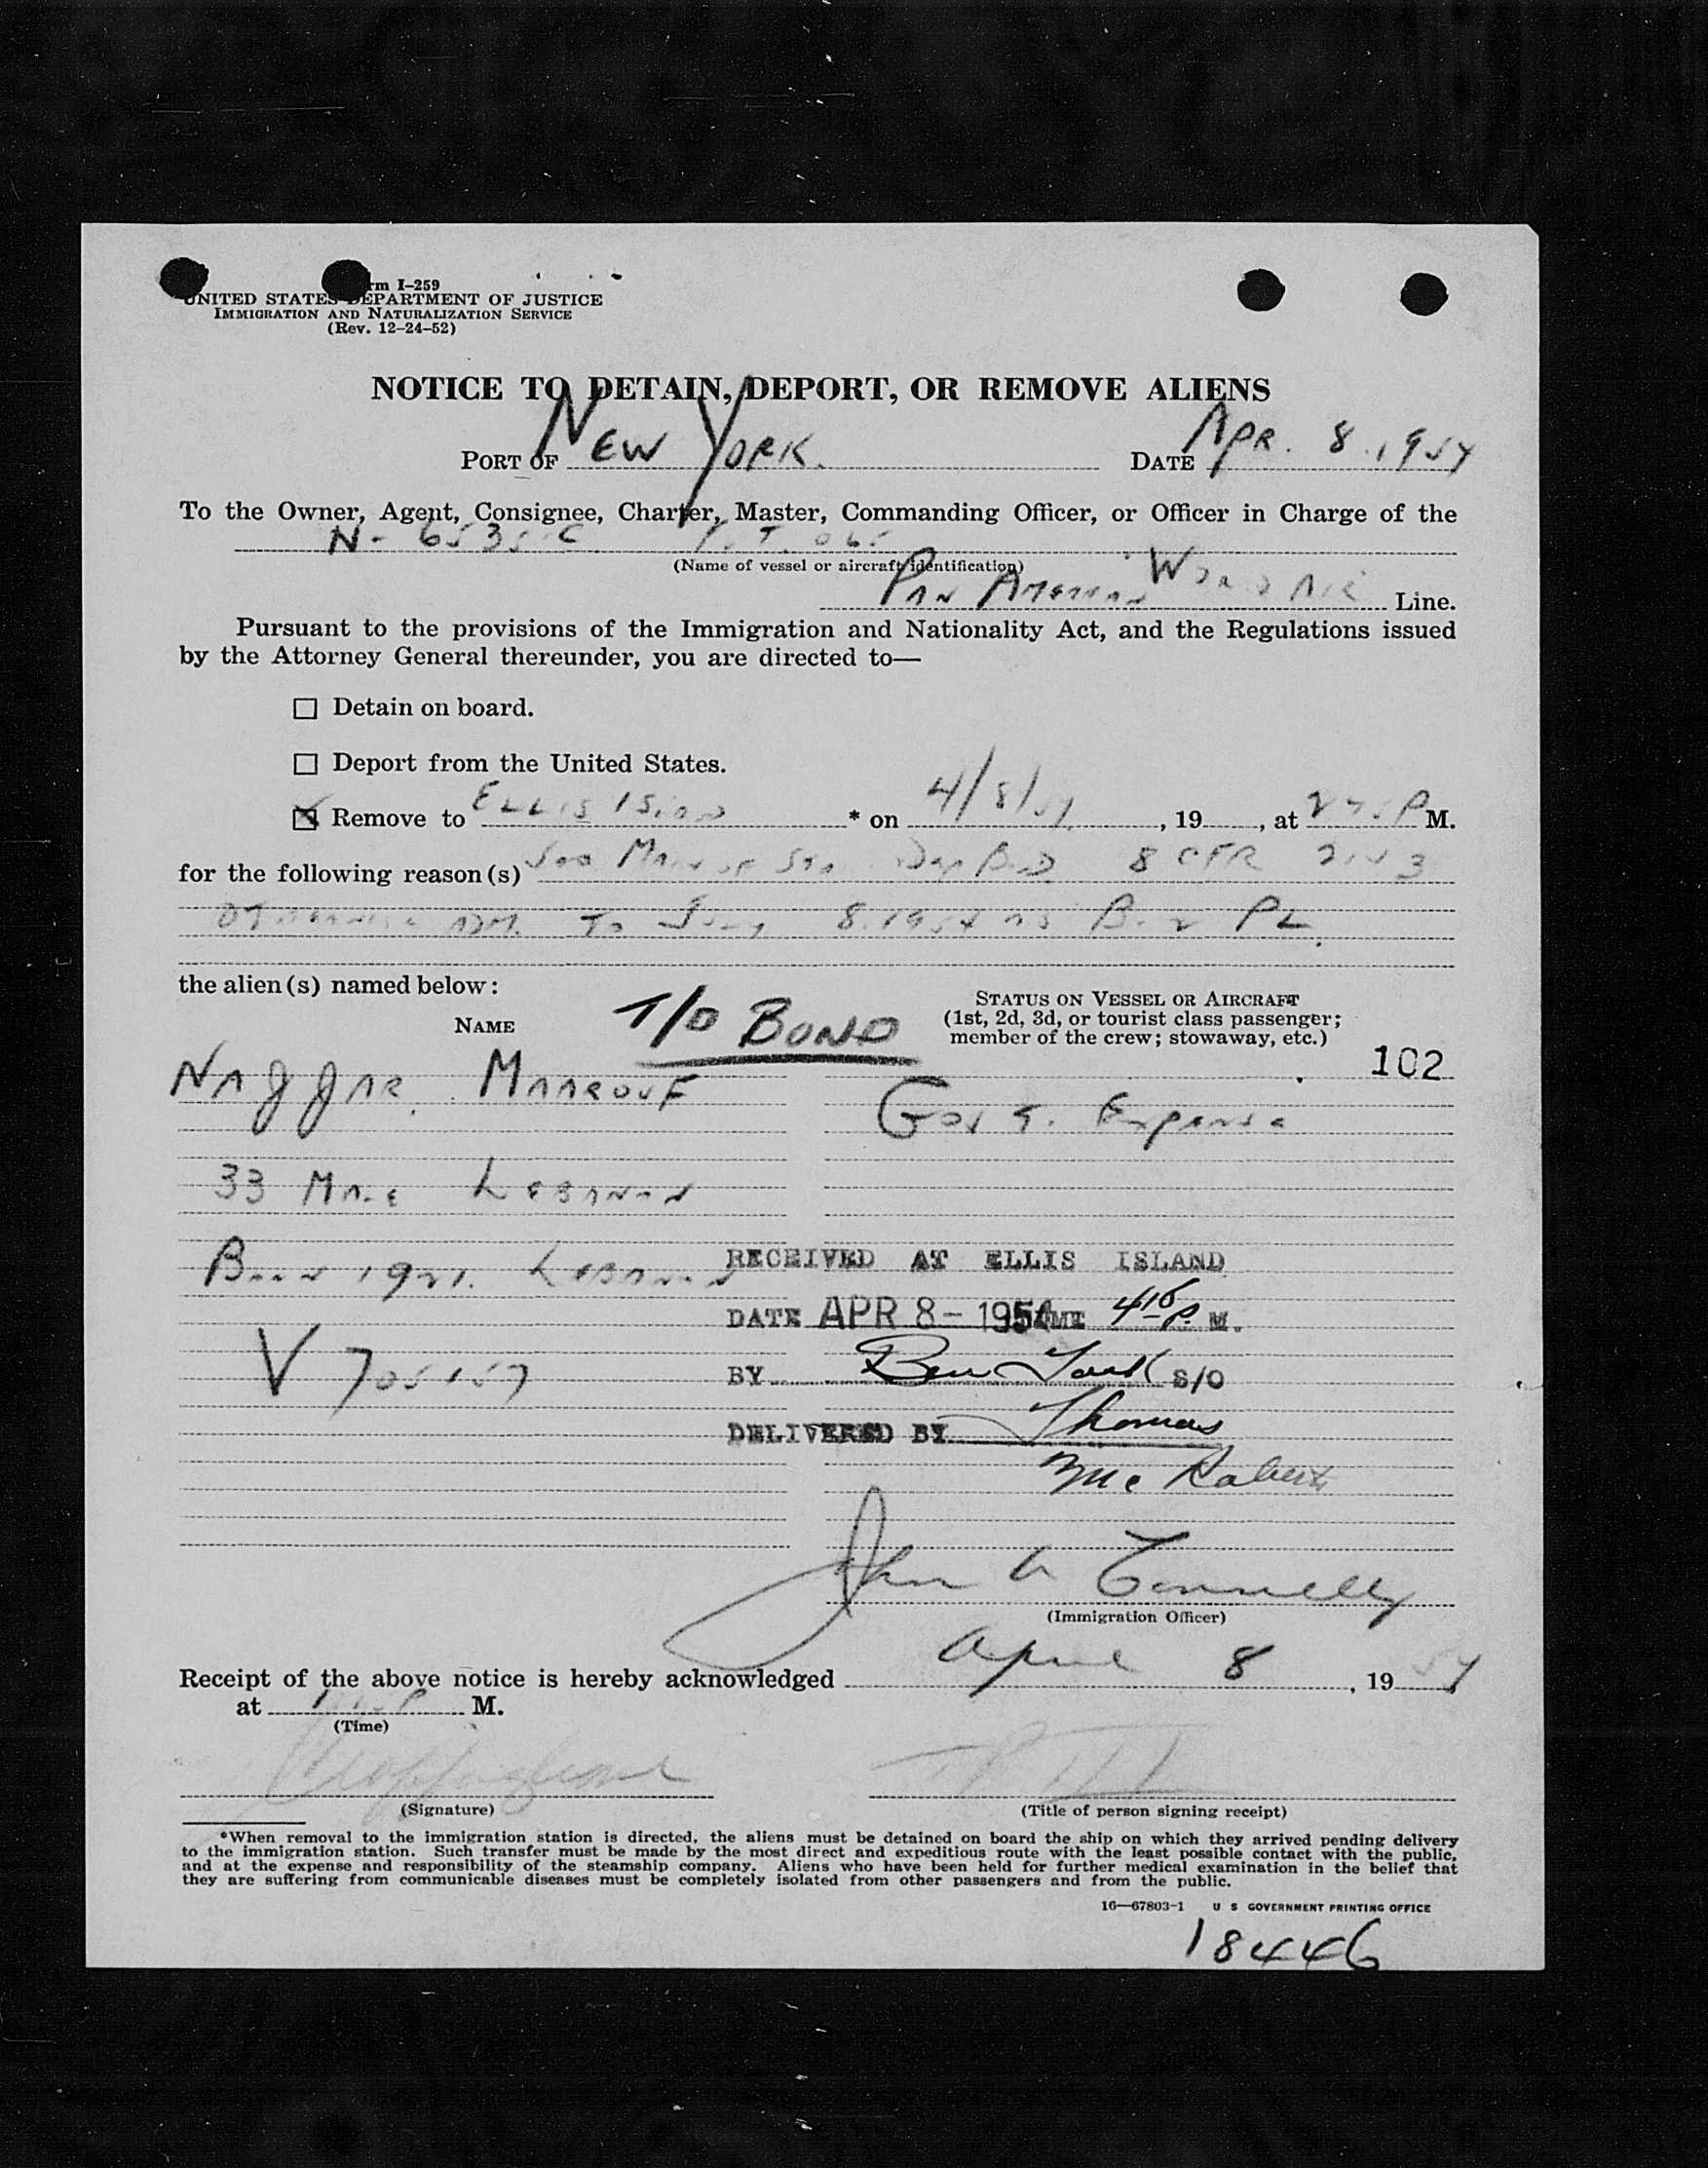 rm I-259
UNITED STATES DEPARTMENT OF JUSTICE
IMMIGRATION AND NATURALIZATION SERVICE
(Rev. 12-24-52)
NOTICE TO DETAIN, DEPORT, OR REMOVE ALIENS
PORT OF NEW YORK. DATE APR. 8. 1954
To the Owner, Agent, Consignee, Charter, Master, Commanding Officer, or Officer in Charge of the
N-6535 C
(Name of vessel or aircraft identification)
PAN AMERICAN WORLD AIR Line.
Pursuant to the provisions of the Immigration and Nationality Act, and the Regulations issued
by the Attorney General thereunder, you are directed to—
Detain on board.
Deport from the United States.
Remove to ELLIS ISLAND * on 4/8/54, 19, at 245 P M.
for the following reason(s) 8 CFR
OTHERWISE ADM. TO July 8. 1954 AS B-2 PL.
the alien(s) named below:
NAME
T/D BOND
STATUS ON VESSEL OR AIRCRAFT
(1st, 2d, 3d, or tourist class passenger;
member of the crew; stowaway, etc.)
102
NAJJAR. MAAROUF
Gov't. Expense
33 MALE LEBANON
BORN 1921. LEBANON
RECEIVED AT ELLIS ISLAND
DATE APR 8 - 1954 TIME 4 10 P. M.
V 705157
BY Ben S/O
DELIVERED BY Thomas
McRoberts
John A Connelly
(Immigration Officer)
Receipt of the above notice is hereby acknowledged April 8, 1954
at P M.
(Time)
(Signature)
(Title of person signing receipt)
*When removal to the immigration station is directed, the aliens must be detained on board the ship on which they arrived pending delivery
to the immigration station. Such transfer must be made by the most direct and expeditious route with the least possible contact with the public,
and at the expense and responsibility of the steamship company. Aliens who have been held for further medical examination in the belief that
they are suffering from communicable diseases must be completely isolated from other passengers and from the public.
16—67803-1 U S GOVERNMENT PRINTING OFFICE
18446